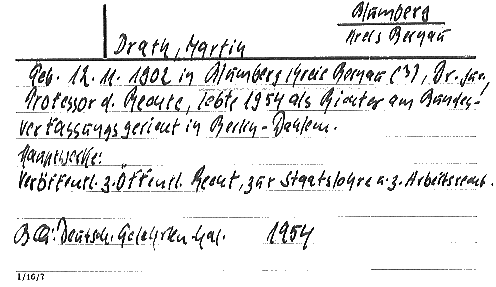 Blumberg
Kreis Torgau
Drath, Martin
Geb. 12. 11. 1902 in Blumberg Kreis Torgau (?), Dr. jur.,
Professor d. Rechte, lebte 1954 als Richter am Bundes-
verfassungsgericht in Berlin-Dahlem.
Hauptwerke:
Veröffentl. z. Öffentl. Recht, zur Staatslehre u. z. Arbeitsrecht.
BQ: Deutsch. Gelehrten-Kal. 1954
1/16/7